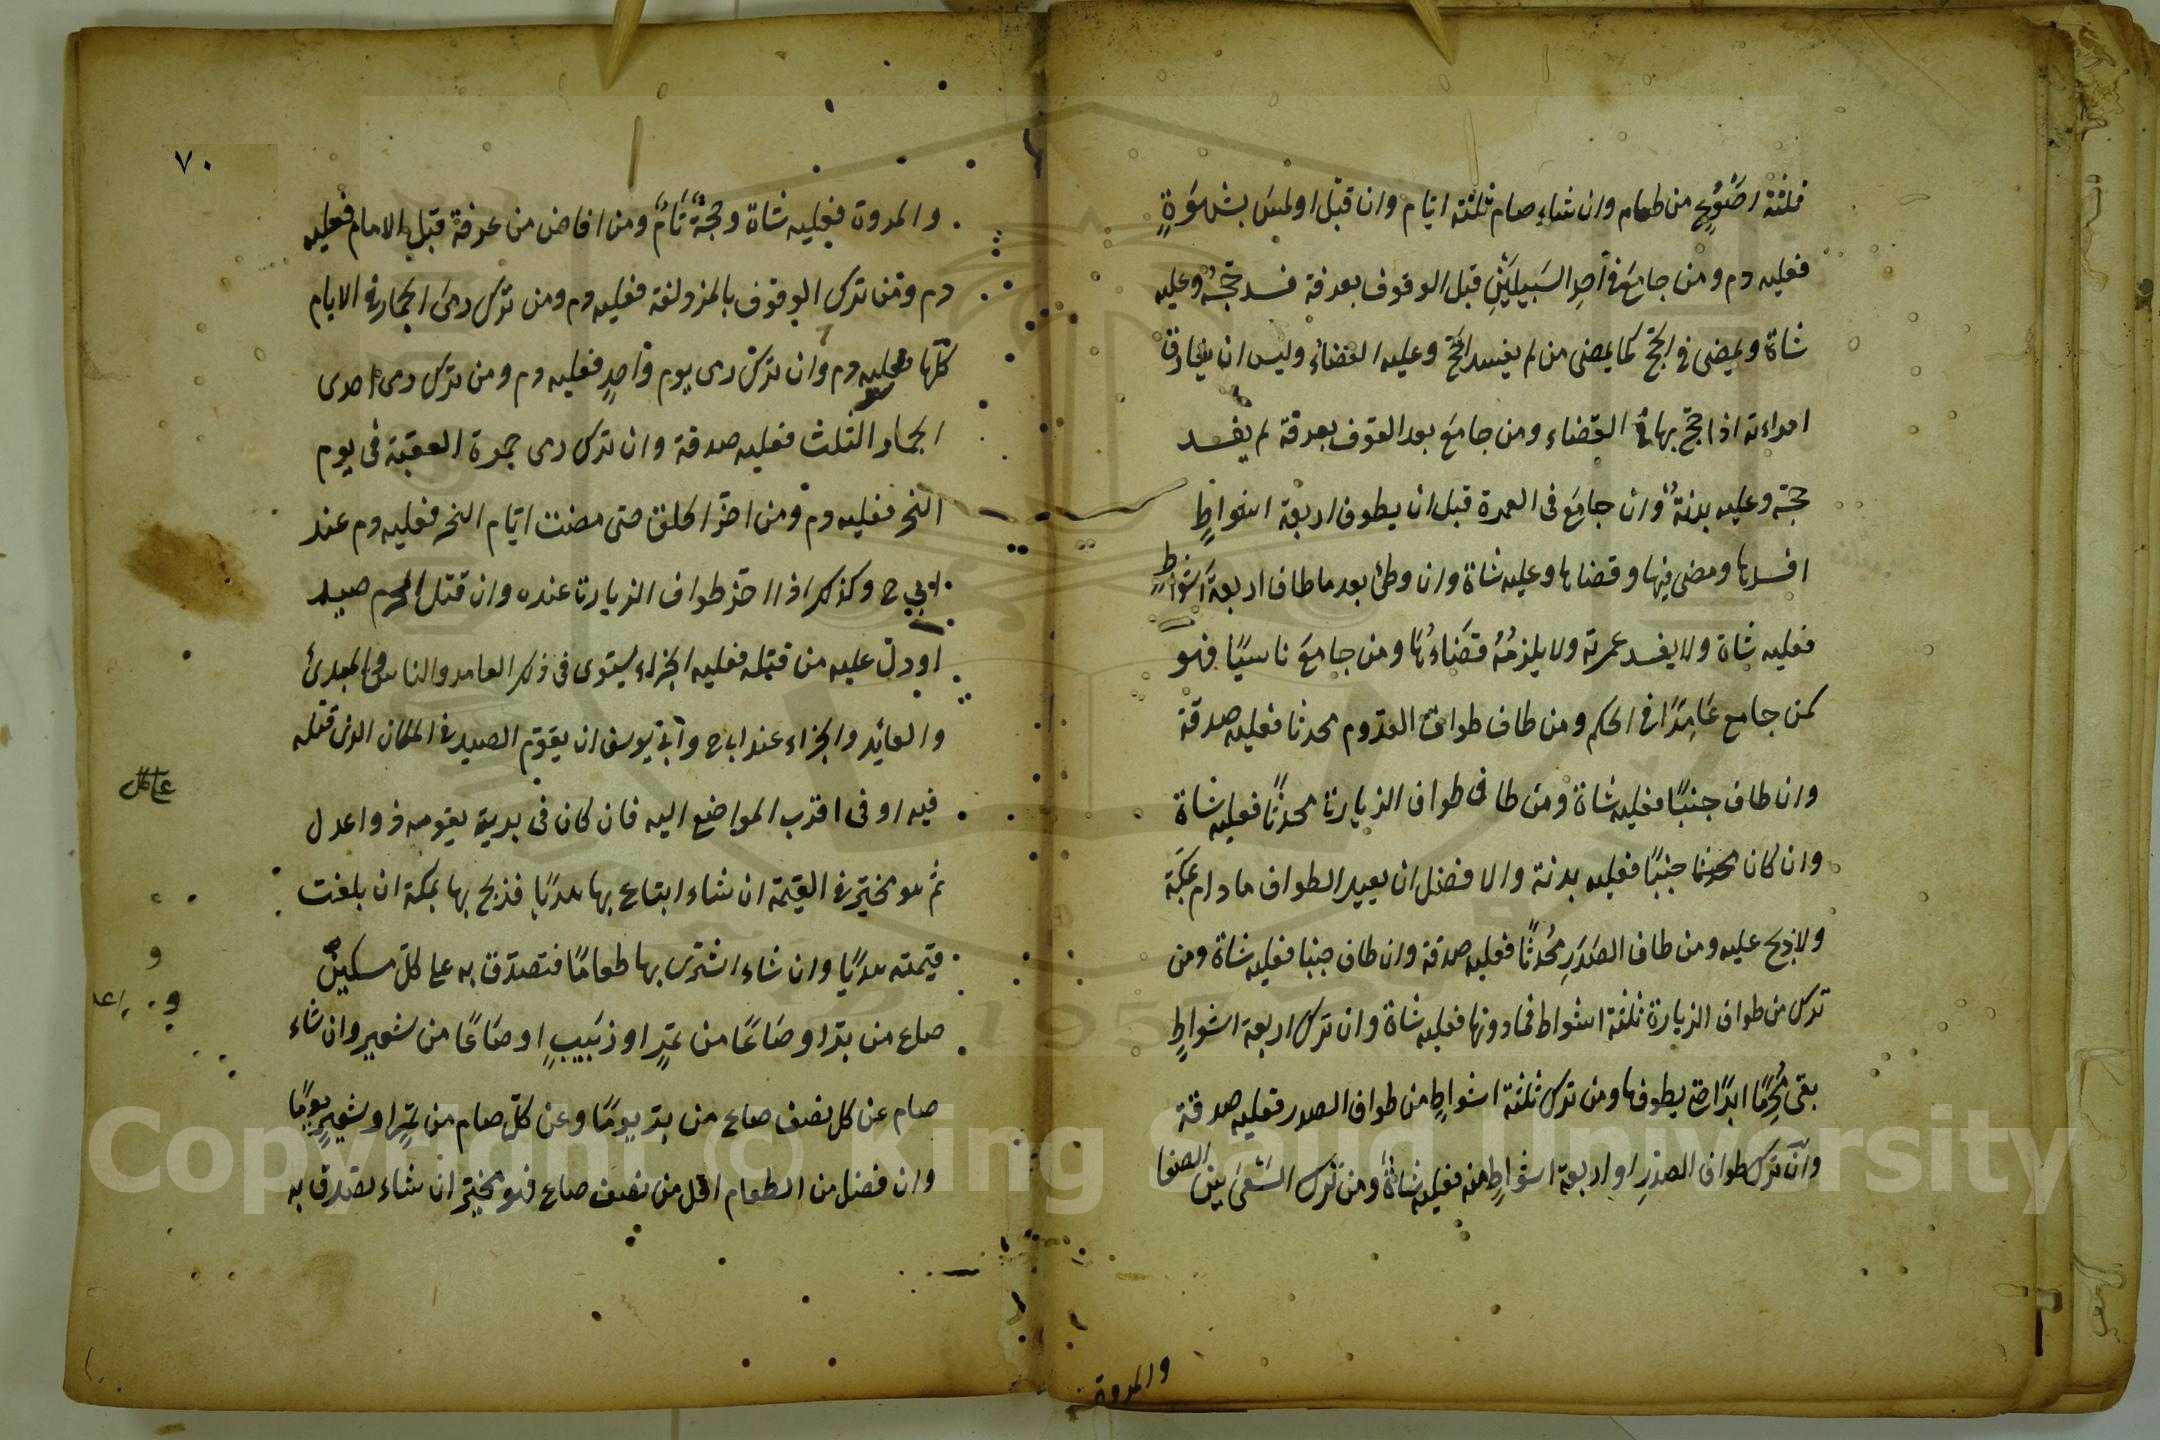 ثلثة اصْوُعٍ من طعام وان شاء صام ثلثة ايام وان قبل او لمس بشهوَةٍ
فعليه دم ومن جامع في احدِ السَبيلَيْنِ قبل الوقوف بعرفة فسد حجّهُ وعليه
شاة ويمضى فى الحجّ كما يمضى من لم يفسد الحجّ وعليه القضاء وليس ان يفارق
امراءته اذا حجّ بها فى القضاء ومن جامع بعد القوف بعرفة لم يفسد
حجّه وعليه بدنةٌ وان جامَع فى العمرة قبل ان يطوف اربعة اشواطٍ
افسدها ومضى فيها وقضاها وعليه شاة وان وطئ بعد ما طاف اربعة اشواطٍ
فعليه شاة ولا يفسد عمرته ولا يلزمُهُ قضَاءُهَا ومن جامعَ ناسيًا فهو
كمن جامع عَامِدًا فى الحكم ومن طاف طواف القدوم محدثا فعليه صدقة
وان طاف جنبًا فعليه شاة ومن طاف طواف الزيارة محدثًا فعليه شاة
وان كان محدثا جنبًا فعليه بدنة والا فضل ان يعيد الطواف ما دام بمكَة
ولا ذبح عليه ومن طاف الصَدَرِ مُحْدثًا فعليه صدقة وان طاف جنبا فعليه شاة ومن
ترك من طواف الزيارة ثلثة اشواط فما دونها فعليه شاة وان ترك اربعة اشواطٍ
بقى مُحْرِمًا ابدًا حتى يطوفها ومن ترك ثلثة اشواطٍ من طواف الصدر فعليه صدقة
وان ترك طواف الصدرِ او اربعة اشواطٍ منه فعليه شاةٌ ومن ترك السَعْىَ بين الصفا
والمروة
٧٠
والمروة فعليه شاة وحجّهُ تَامٌ ومن افاض من عرفة قبل الامام فعليه
دم ومن ترك الوقوف بالمزولفة فعليه دم ومن ترك رمىَ الجمار فى الايام
كلّها فعليه دم وان ترك رمى يوم واحدٍ فعليه دم ومن ترك رمى احدى
الجمار الثلث فعليه صدقة وان ترك رمى جمرة العقبة فى يوم
النحر فعليه دم ومن اخّر الحلق حتى مضت ايّام النحر فعليه دم عند
ابي ح وكذلك اذا اخّر طواف الزيارة عنده وان قتل المحرم صيد
او دلّ عليه من قتله فعليه الجزاء يستوى فى ذلك العامد والناسى والمبدئ
والعائد والجزاء عند ابى ح وابى يوسف ان يقوّم الصيد فى المكان الذى قتله
فيه او فى اقرب المواضع اليه فان كان فى برية يقومه ذو اعدل
ثم هو مخيّر فى القيمة ان شاء ابتاع بها هديًا فذبح بها بمكة ان بلغت
قيمته هديًا وان شاء اشترى بها طعامًا فتصدّق به على كلّ مسكينٍ
صاع من برّ او صَاعًا من تمرٍ او زبيبٍ او صَاعًا من شعير وان شاء
صام عن كل نصف صاع من برّ يومًا وعن كلّ صام من تمرٍ او شعيرٍ يومًا
وان فضل من الطعام اقل من نصف صاع فهو مخيّر ان شاء تصدق به
Copyright © King Saud University
1957